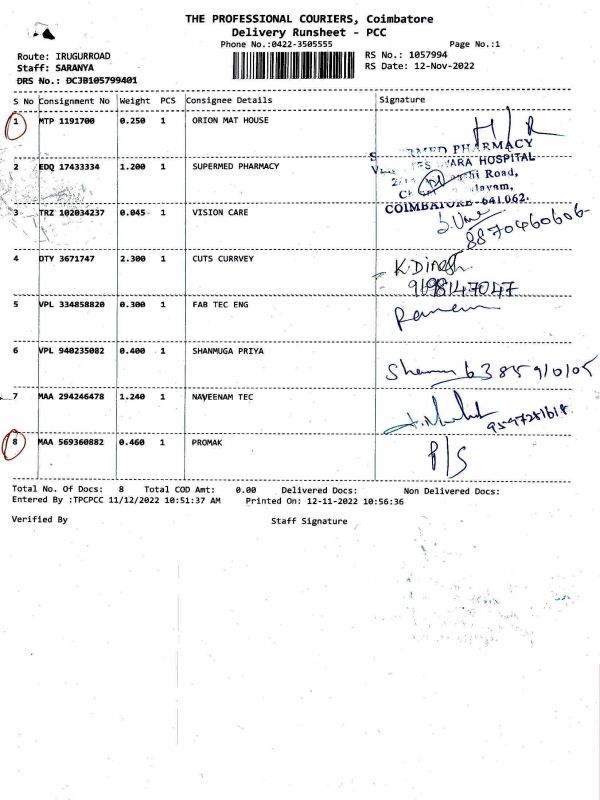 THE PROFESSIONAL COURIERS, Coimbatore
Delivery Runsheet - PCC
Phone No.:0422-3505555 Page No.:1
Route: IRUGURROAD RS No.: 1057994
Staff: SARANYA RS Date: 12-Nov-2022
DRS No.: DCJB105799401
S No Consignment No Weight PCS Consignee Details Signature
1 MTP 1191700 0.250 1 ORION MAT HOUSE H/R
2 EDQ 17433334 1.200 1 SUPERMED PHARMACY
PHARMACY
HOSPITAL
Road,
COIMBATORE-641062.
3 TRZ 102034237 0.045 1 VISION CARE
8870460606
4 DTY 3671747 2.300 1 CUTS CURRVEY K.Dinesh
9198147047
5 VPL 334858820 0.300 1 FAB TEC ENG
6 VPL 940235082 0.400 1 SHANMUGA PRIYA
6385910105
7 MAA 294246478 1.240 1 NAVEENAM TEC
8 MAA 569360882 0.460 1 PROMAK P/S
Total No. Of Docs: 8 Total COD Amt: 0.00 Delivered Docs: Non Delivered Docs:
Entered By :TPCPCC 11/12/2022 10:51:37 AM Printed On: 12-11-2022 10:56:36
Verified By Staff Signature